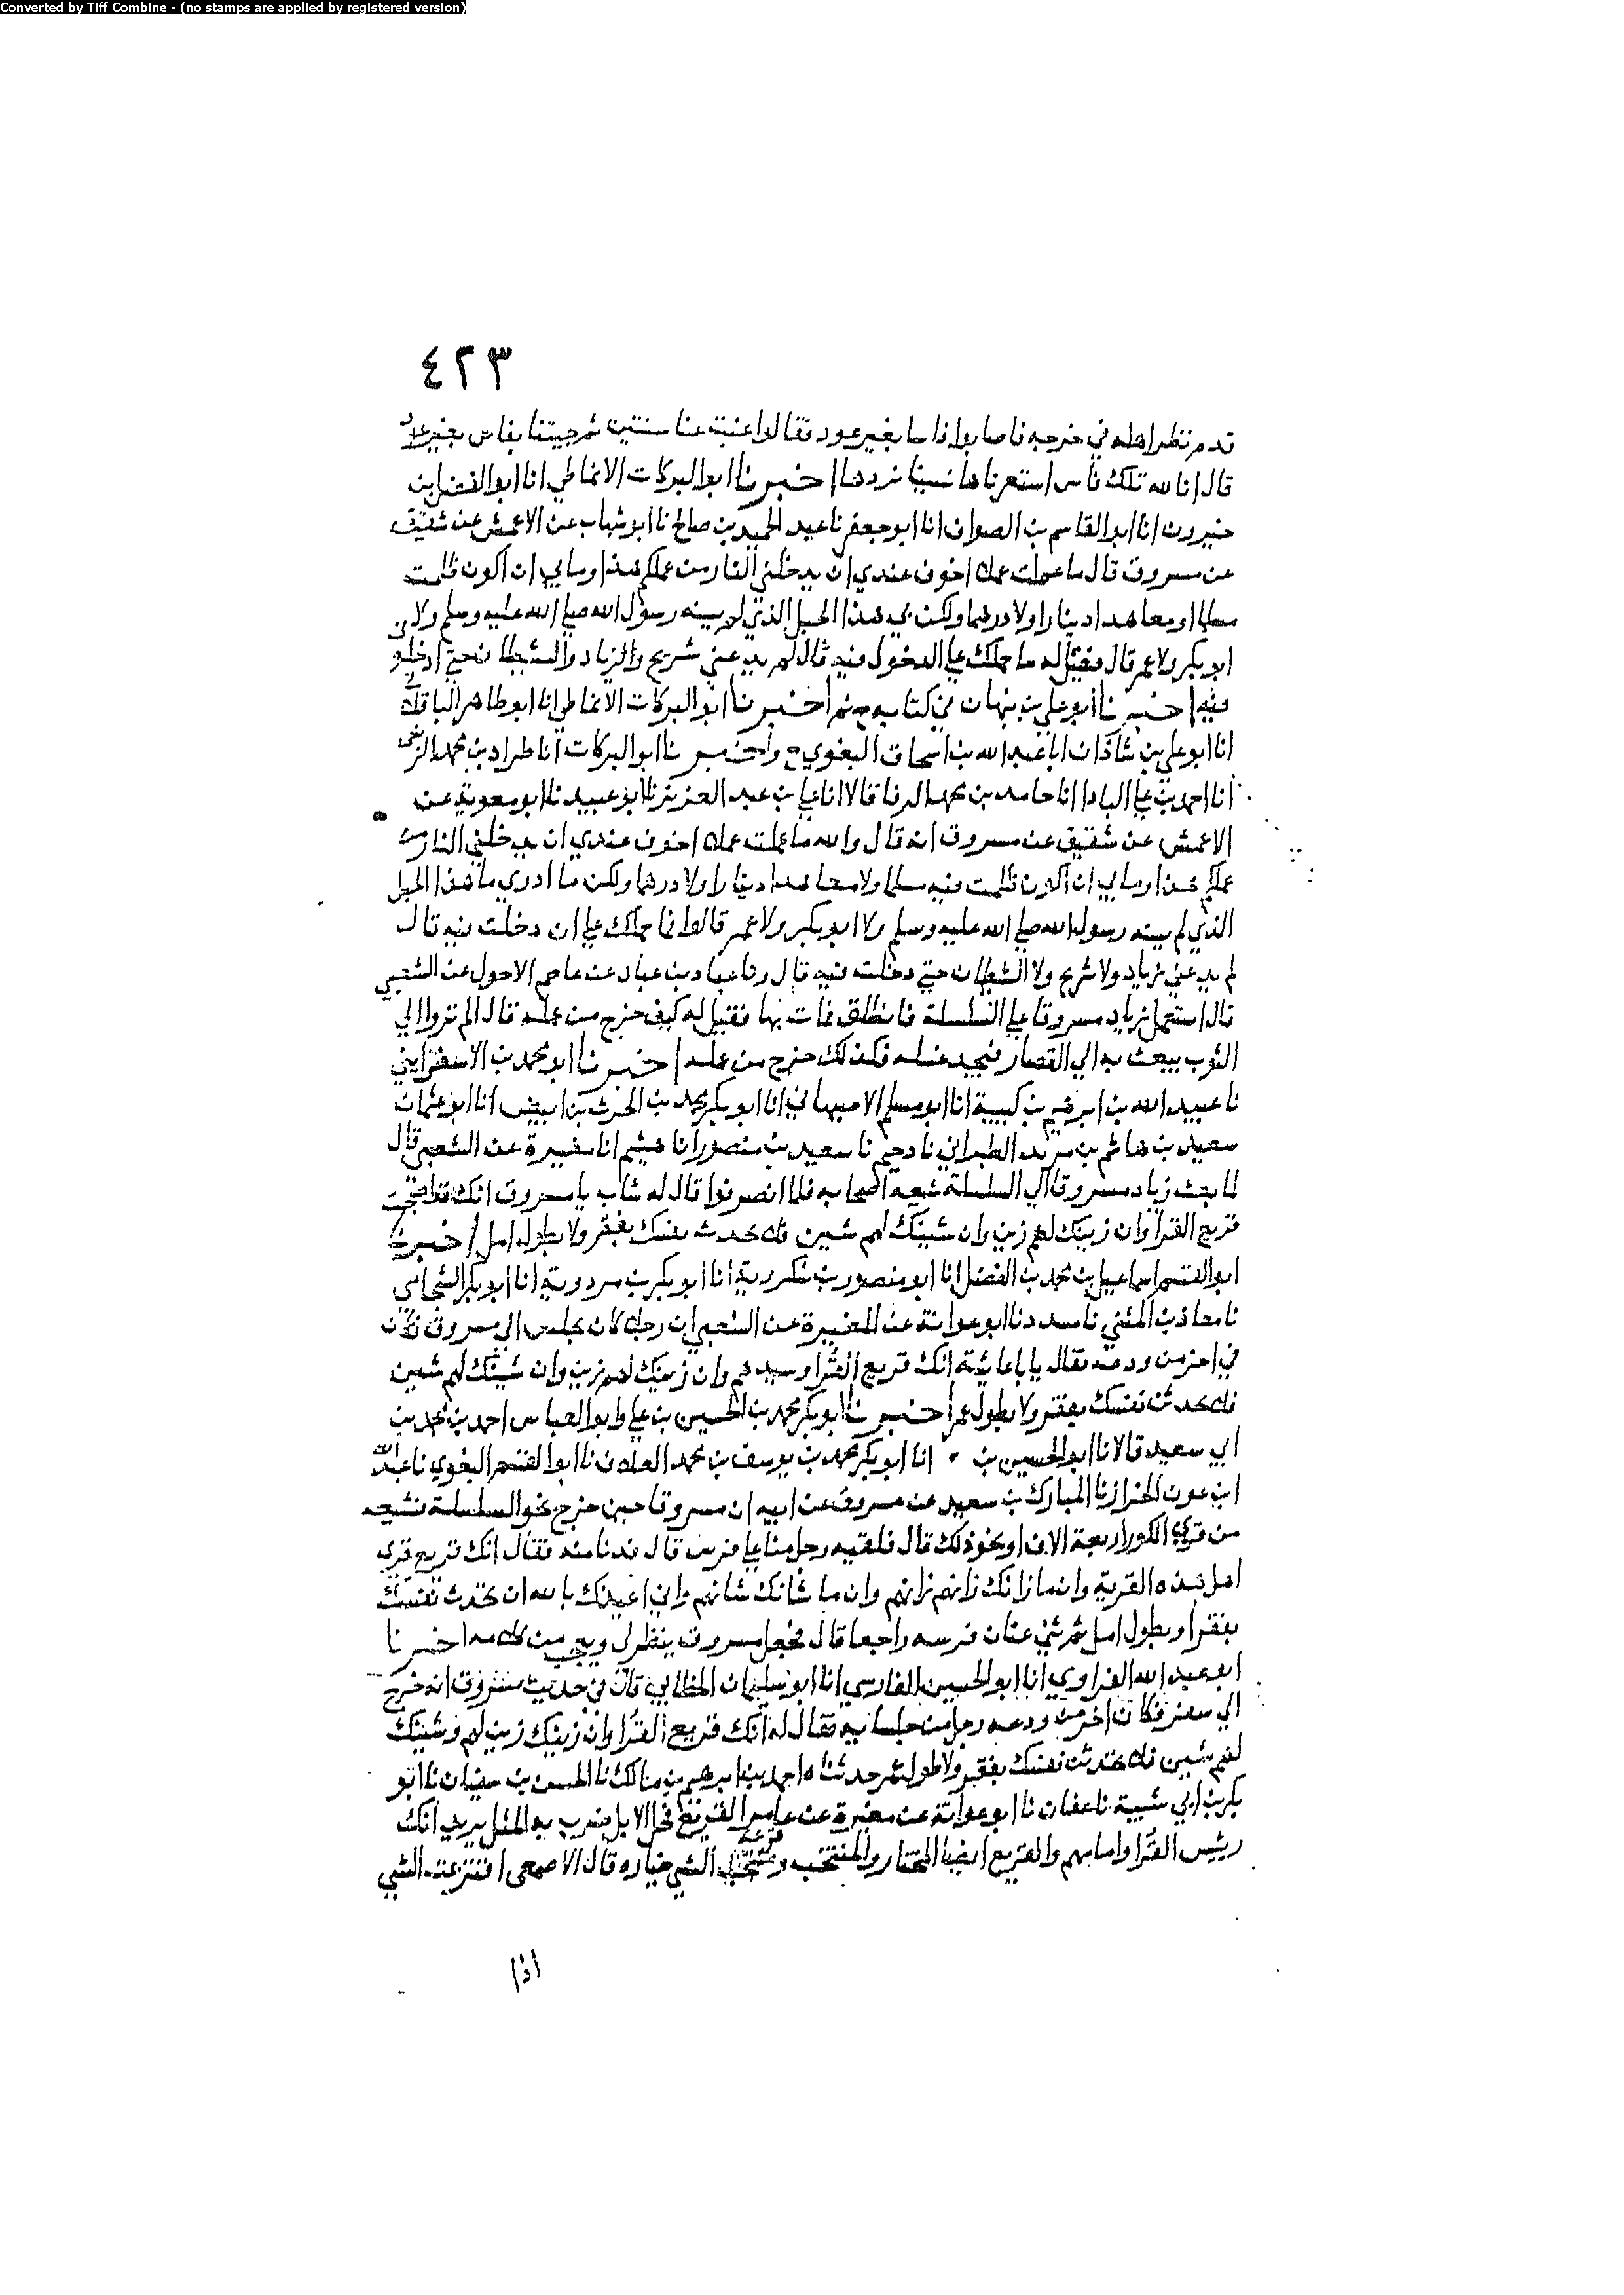 Converted by Tiff Combine - (no stamps are applied by registered version)
٤٢٣
قدم نظر اهله في خرجه فاصابوا فاسا بغير عود فقالوا غبت عنا سنتين ثم جيتنا بفاس بغير عود
قال انا لله تلك فاس استعرناها نسينا نردها اخبرنا ابو البركات الانماطي انا ابو الفضل بن
خيرون انا ابو القاسم بن الصواف انا ابو جعفر نا عبد الحميد بن صالح نا ابو شهاب عن الاعمش عن شقيق
عن مسروق قال ما عملت عملا اخوف عندي ان يدخلني النار من عملكم هذا وما بي ان اكون ظلمت
مسلما او معاهدا دينارا ولا درهما ولكن بي هذا الحبل الذي لم يسنه رسول الله صلى الله عليه وسلم ولا
ابو بكر ولا عمر قال فقيل له ما حملك على الدخول فيه قال لم يدعني شريح والزياد والشيطان حتى ادخلو
فيه اخبرنا ابو علي بن نبهان في كتابه ح ثم اخبرنا ابو البركات الانماطي انا ابو طاهر الباقلاني
انا ابو علي بن شاذان انا عبد الله بن اسحاق البغوي ح واخبرنا ابو البركات انا طراد بن محمد الزينبي
انا احمد بن علي البادا انا حامد بن محمد الرفا قالا انا علي بن عبد العزيز نا ابو عبيد نا ابو معوية عن
الاعمش عن شقيق عن مسروق انه قال والله ما عملت عملا اخوف عندي ان يدخلني النار من
عملكم هذا وما بي ان اكون ظلمت فيه مسلما ولا معاهدا دينارا ولا درهما ولكن ما ادري ما هذا الحبل
الذي لم يسنه رسول الله صلى الله عليه وسلم ولا ابو بكر ولا عمر قالوا فما حملك على ان دخلت فيه قال
لم يدعني زياد ولا شريح ولا الشيطان حتى دخلت فيه قال ونا عباد بن عباد عن عاصم الاحول عن الشعبي
قال استعمل زياد مسروقا على السلسلة فانطلق فمات بها فقيل له كيف خرج من عمله قال الم تروا الى
الثوب يبعث به الى القصار فيجيد غسله فكذلك خرج من عمله اخبرنا ابو محمد بن الاسفراييني
نا عبيد الله بن ابرهيم بن كبيبة انا ابو مسلم الاصبهاني انا ابو بكر محمد بن الحرث بن ابيض انا ابو عثمان
سعيد بن هاشم بن مريد الطبراني نا دحيم نا سعيد بن منصور انا هشيم انا مغيرة عن الشعبي قال
لما بعث زياد مسروقا الى السلسلة شيعه اصحابه فلما انصرفوا قال له شاب يا مسروق انك قد اصبحت
قريع القرا وان زينك لهم زين وان شينك لهم شين فلا تحدث نفسك بفقر ولا بطول امل اخبرنا
ابو القسم اسماعيل بن محمد بن الفضل انا ابو منصور بن شكروية انا ابو بكر بن مردوية انا ابو بكر الشافعي
نا معاذ بن المثني نا مسدد نا ابو عوانة عن المغيرة عن الشعبي ان رجلا كان يجلس الى مسروق فكان
في اخر من ودعه فقال يابا عايشة انك قريع القرا وسيدهم وان زينك لهم زين وان شينك لهم شين
فلا تحدثن نفسك بفقر ولا بطول عمر اخبرنا ابو بكر محمد بن الحسين بن علي وابو العباس احمد بن محمد بن
ابي سعيد قالا انا ابو الحسين بن انا ابو بكر محمد بن يوسف بن محمد العلاف نا ابو القسم البغوي نا عبد الله
ابن عون الخراز نا المبارك بن سعيد عن مسروق عن ابيه ان مسروقا حين خرج نحو السلسلة تشيعه
من قرى الكور اربعة الاف او نحو ذلك قال فلقيه رجل منا على فرس قال فدنا منه فقال انك قريع قرى
اهل هذه القرية وان ما زانك زانهم زانهم وان ما شانك شانهم واني اعيذك بالله ان تحدث نفسك
بفقر او بطول امل ثم ثنى عنان فرسه راجعا قال فجعل مسروق ينظر ويعجب من كلامه اخبرنا
ابو عبد الله الفراوي انا ابو الحسين الفارسي انا ابو سليمان الخطابي قال في حديث مسروق انه خرج
الى سفر فكان اخر من ودعه رجل من جلسايه فقال له انك قريع القرا وان زينك زين لهم وشينك
لهم شين فلا تحدثن نفسك بفقر ولا طول عمر حدثناه احمد بن ابرهيم بن مالك نا الحسن بن سفيان نا ابو
بكر بن ابي شيبة نا عفان نا ابو عوانة عن مغيرة عن عامر القريع فحل الابل ضرب به المثل يريد انك
رييس القرا وامامهم والقريع ايضا المختار والمنتخب وقرعة الشي خياره قال الاصمعي اقترعت الشي
اذا